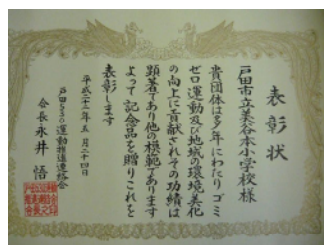 表彰状
戸田市立美谷本小学校様
貴団体は多年にわたりゴミ
ゼロ運動及び地域の環境美化
の向上に貢献されその功績は
顕著であり他の模範であります
よって記念品を贈りこれを
表彰します
平成二十二年五月二十四日
戸田530運動推進連絡会
会長永井悟